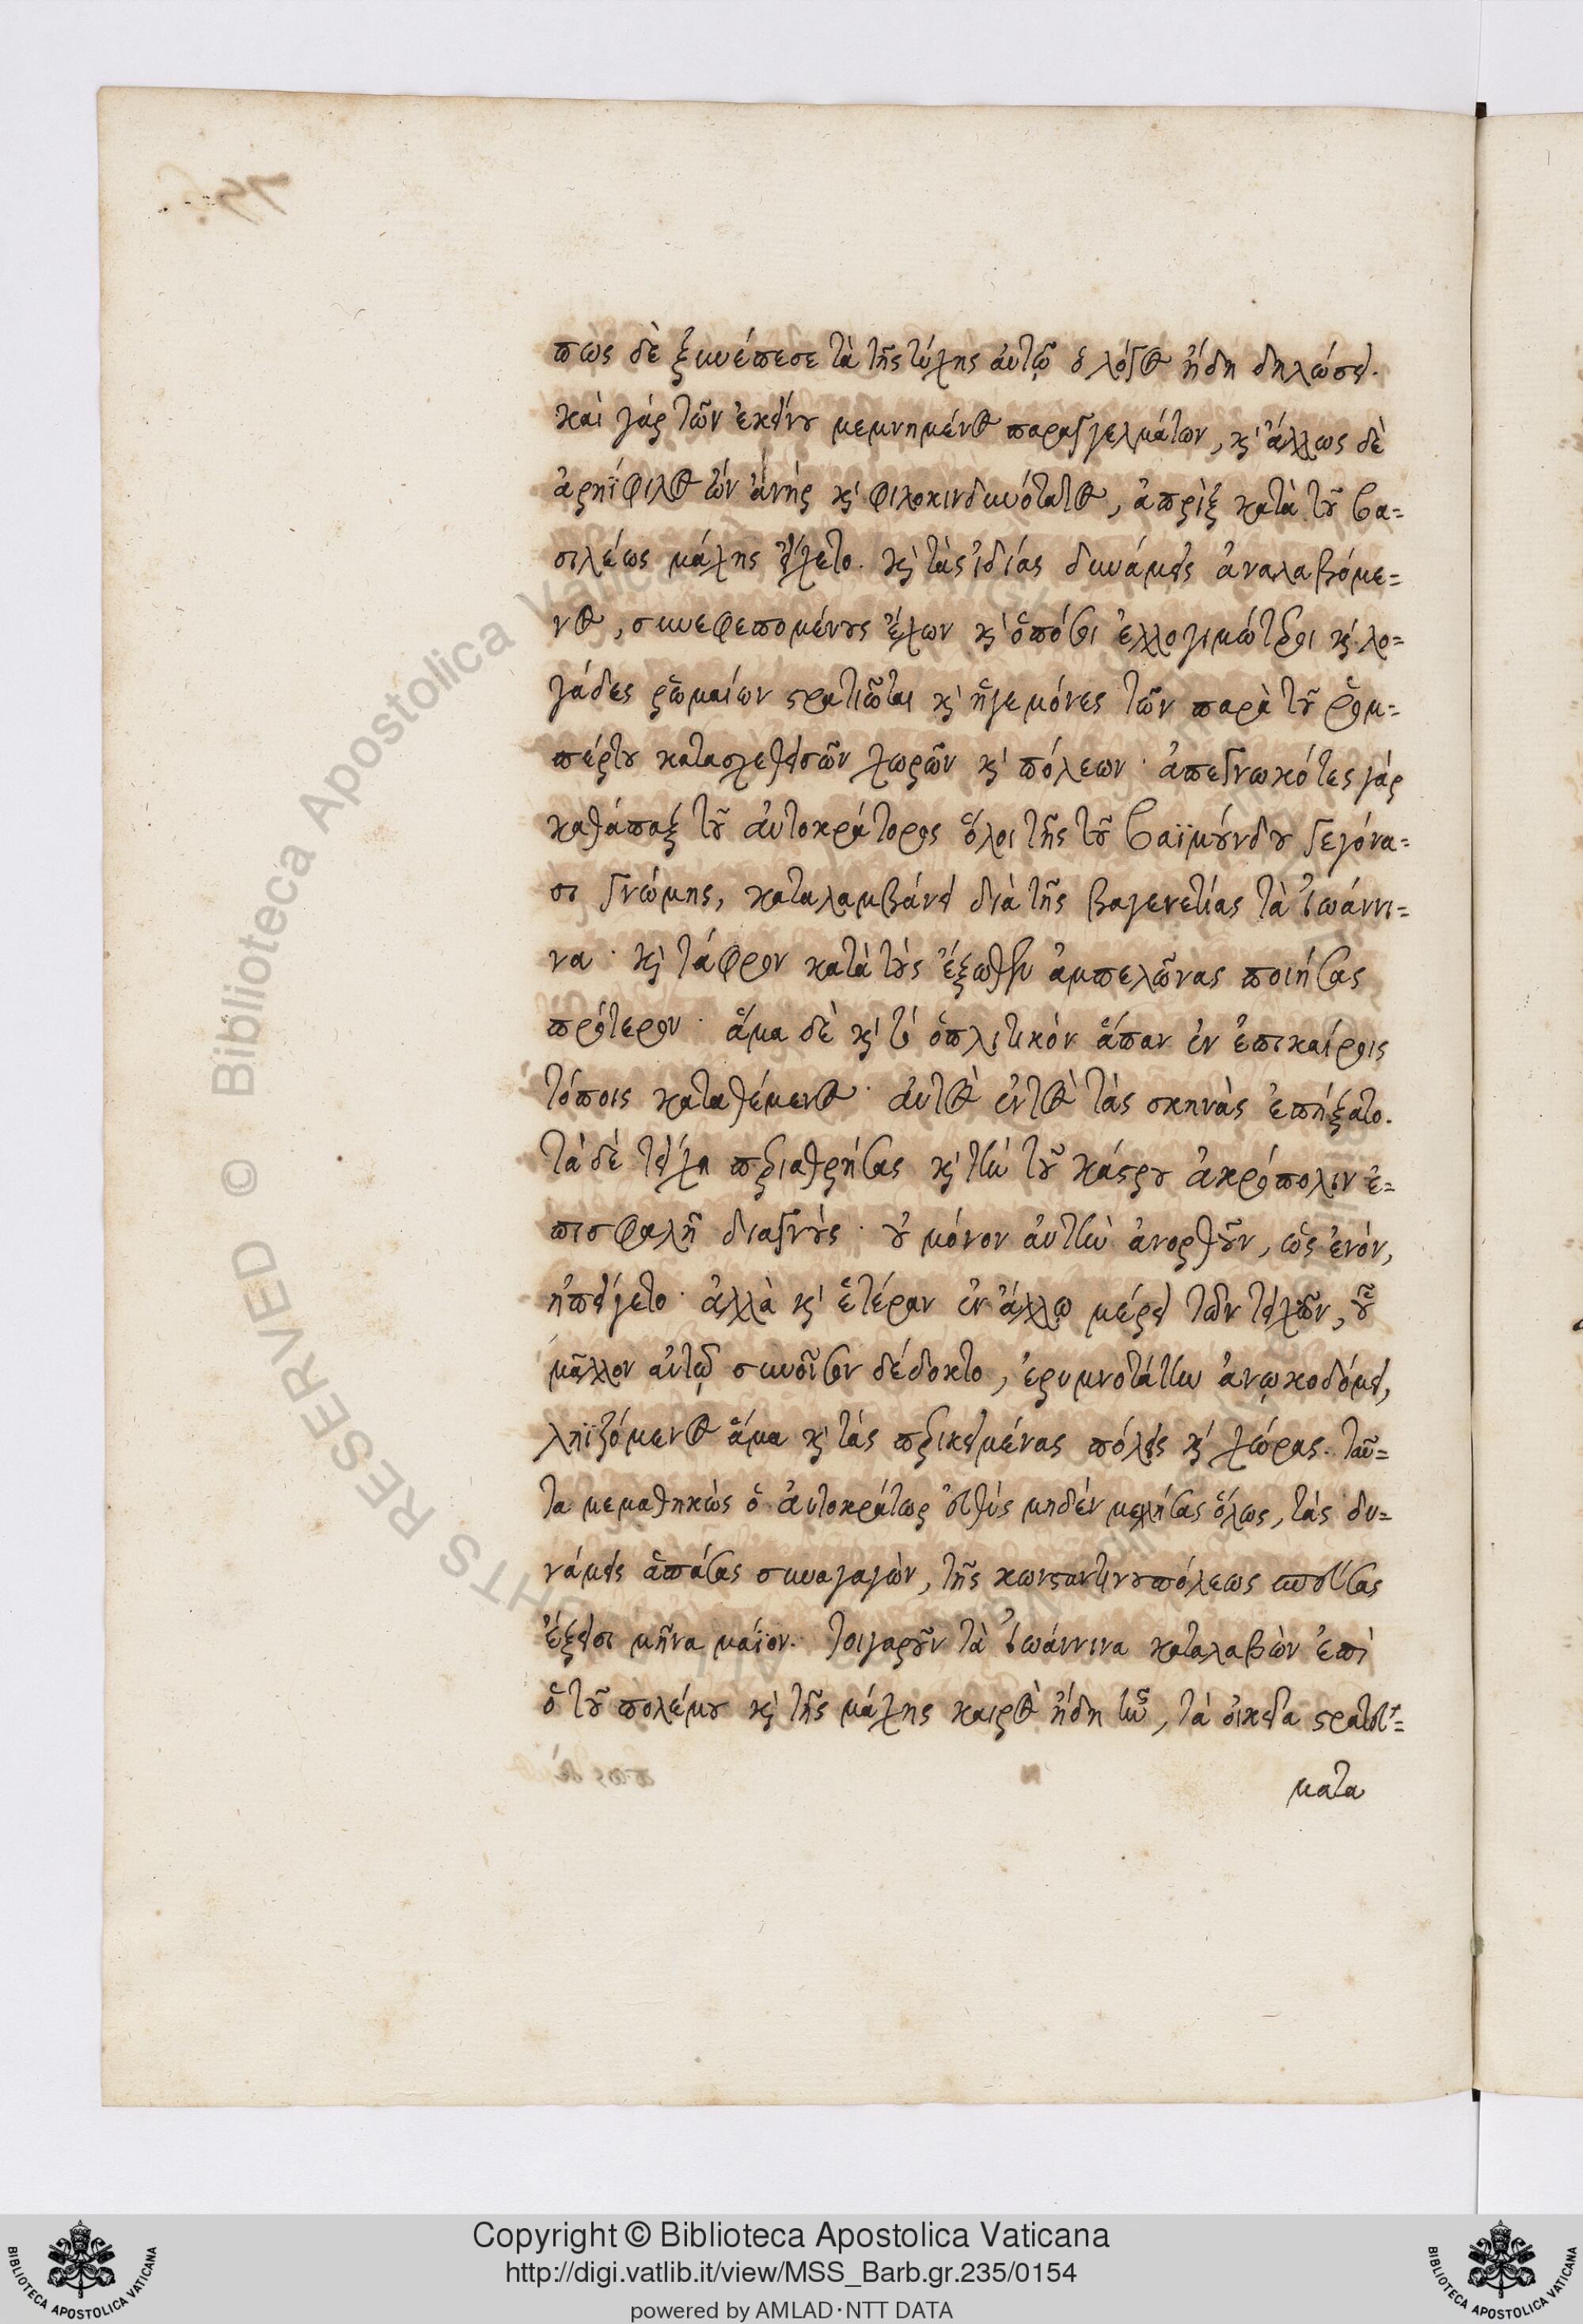 πῶς δὲ ξυνέπεσε τὰ τῆς τύχης αὐτῷ ὁ λόγος ἤδη δηλώσει.
καὶ γὰρ τῶν ἐκείνου μεμνημένος παραγγελμάτων, κ' ἄλλως δὲ
ἀρηΐφιλος ὢν ἀνὴρ κ' φιλοκινδυνότατος, ἀπρὶξ κατὰ τοῦ βα=
σιλέως μάχης εἴχετο. κ' τὰς ἰδίας δυνάμεις ἀναλαβόμε=
νος, συνεφεπομένους ἔχων κ' ὁπόσοι ἐλλογιμώτεροι κ' λο=
γάδες ῥωμαίων στρατιῶται κ' ἡγεμόνες τῶν παρὰ τοῦ ῥομ=
πέρτου κατασχεθεισῶν χωρῶν κ' πόλεων· ἀπεγνωκότες γὰρ
καθάπαξ τοῦ αὐτοκράτορος ὅλοι τῆς τοῦ βαϊμούνδου γεγόνα=
σι γνώμης, καταλαμβάνει διὰ τῆς βαγενετίας τὰ ἰωάννι=
να· κ' τάφρον κατὰ τοὺς ἔξωθεν ἀμπελῶνας ποιήσας
πρότερον· ἅμα δὲ κ' τὸ ὁπλιτικὸν ἅπαν ἐν ἐπικαίροις
τόποις καταθέμενος· αὐτὸς ἐντὸς τὰς σκηνὰς ἐπήξατο.
τὰ δὲ τείχη περιαθρήσας κ' τὴν τοῦ κάστρου ἀκρόπολιν ἐ=
πισφαλῆ διαγνούς· οὐ μόνον αὐτὴν ἀνορθοῦν, ὡς ἐνόν,
ἠπείγετο· ἀλλὰ κ' ἑτέραν ἐν ἄλλῳ μέρει τῶν τειχῶν, οὗ
μᾶλλον αὐτῷ συνοῖσον δέδοκτο, ἐρυμνοτάτην ἀνῳκοδόμει,
ληϊζόμενος ἅμα κ' τὰς περικειμένας πόλεις κ' χώρας. ταῦ=
τα μεμαθηκὼς ὁ αὐτοκράτωρ εὐθὺς μηδὲν μελλήσας ὅλως, τὰς δυ=
νάμεις ἁπάσας συναγαγὼν, τῆς κωνσταντινουπόλεως
ἔξεισι μῆνα μάϊον. τοιγαροῦν τὰ ἰωάννινα καταλαβὼν ἐπεὶ
ὁ τοῦ πολέμου κ' τῆς μάχης καιρὸς ἤδη ἦν, τὰ οἰκεῖα στρατεύ=
ματα
Copyright © Biblioteca Apostolica Vaticana
http://digi.vatlib.it/view/MSS_Barb.gr.235/0154
powered by AMLAD·NTT DATA